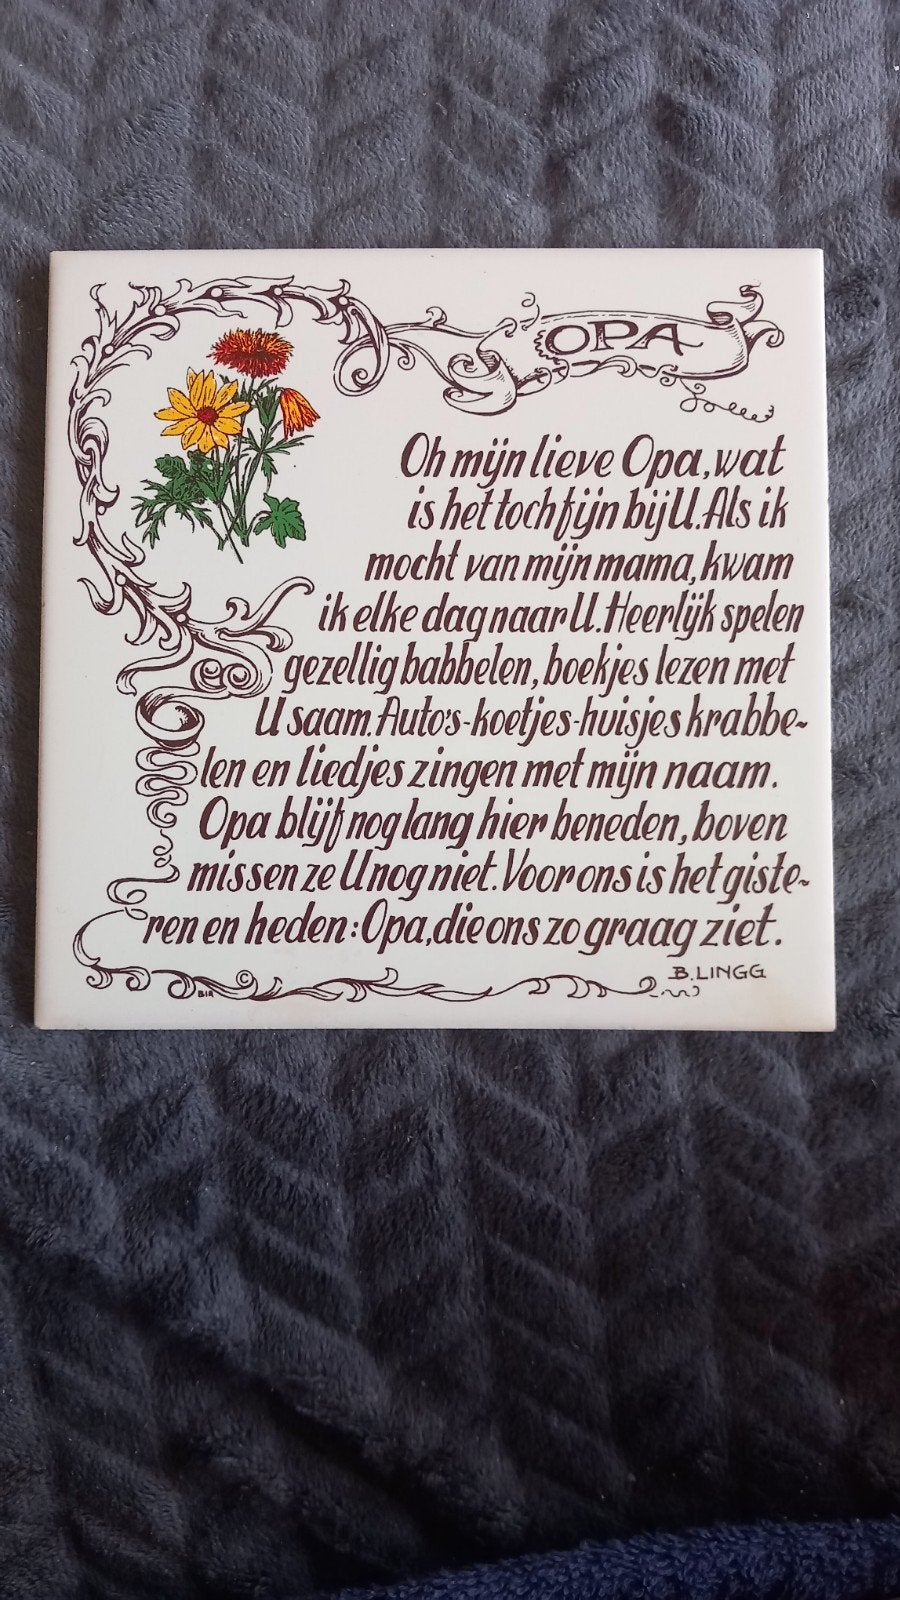 OPA
Oh mijn lieve Opa, wat
is het toch fijn bij U. Als ik
mocht van mijn mama, kwam
ik elke dag naar U. Heerlijk spelen
gezellig babbelen, boekjes lezen met
U saam. Auto's-koetjes-huisjes krabbe-
len en liedjes zingen met mijn naam.
Opa blijf nog lang hier beneden, boven
missen ze U nog niet. Voor ons is het giste-
ren en heden: Opa, die ons zo graag ziet.
B. LINGG
BIR ©